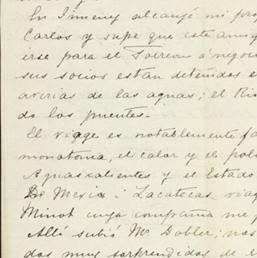 En Jimenez alcanzé mi pro
Carlos y supe que este amig
irse para el Torreon á negoci
sus socios están detenidos e
averias de las aguas; el Rio
do los puentes.
El viage es notablemente fa
monotomia, el calor y el pol
Aguascalientes y el Estado
De Mexico á Zacatecas viag
Minot cuya compañia me f
Allí subió Mr. Dobler; nos
dos muy sorprendidos de